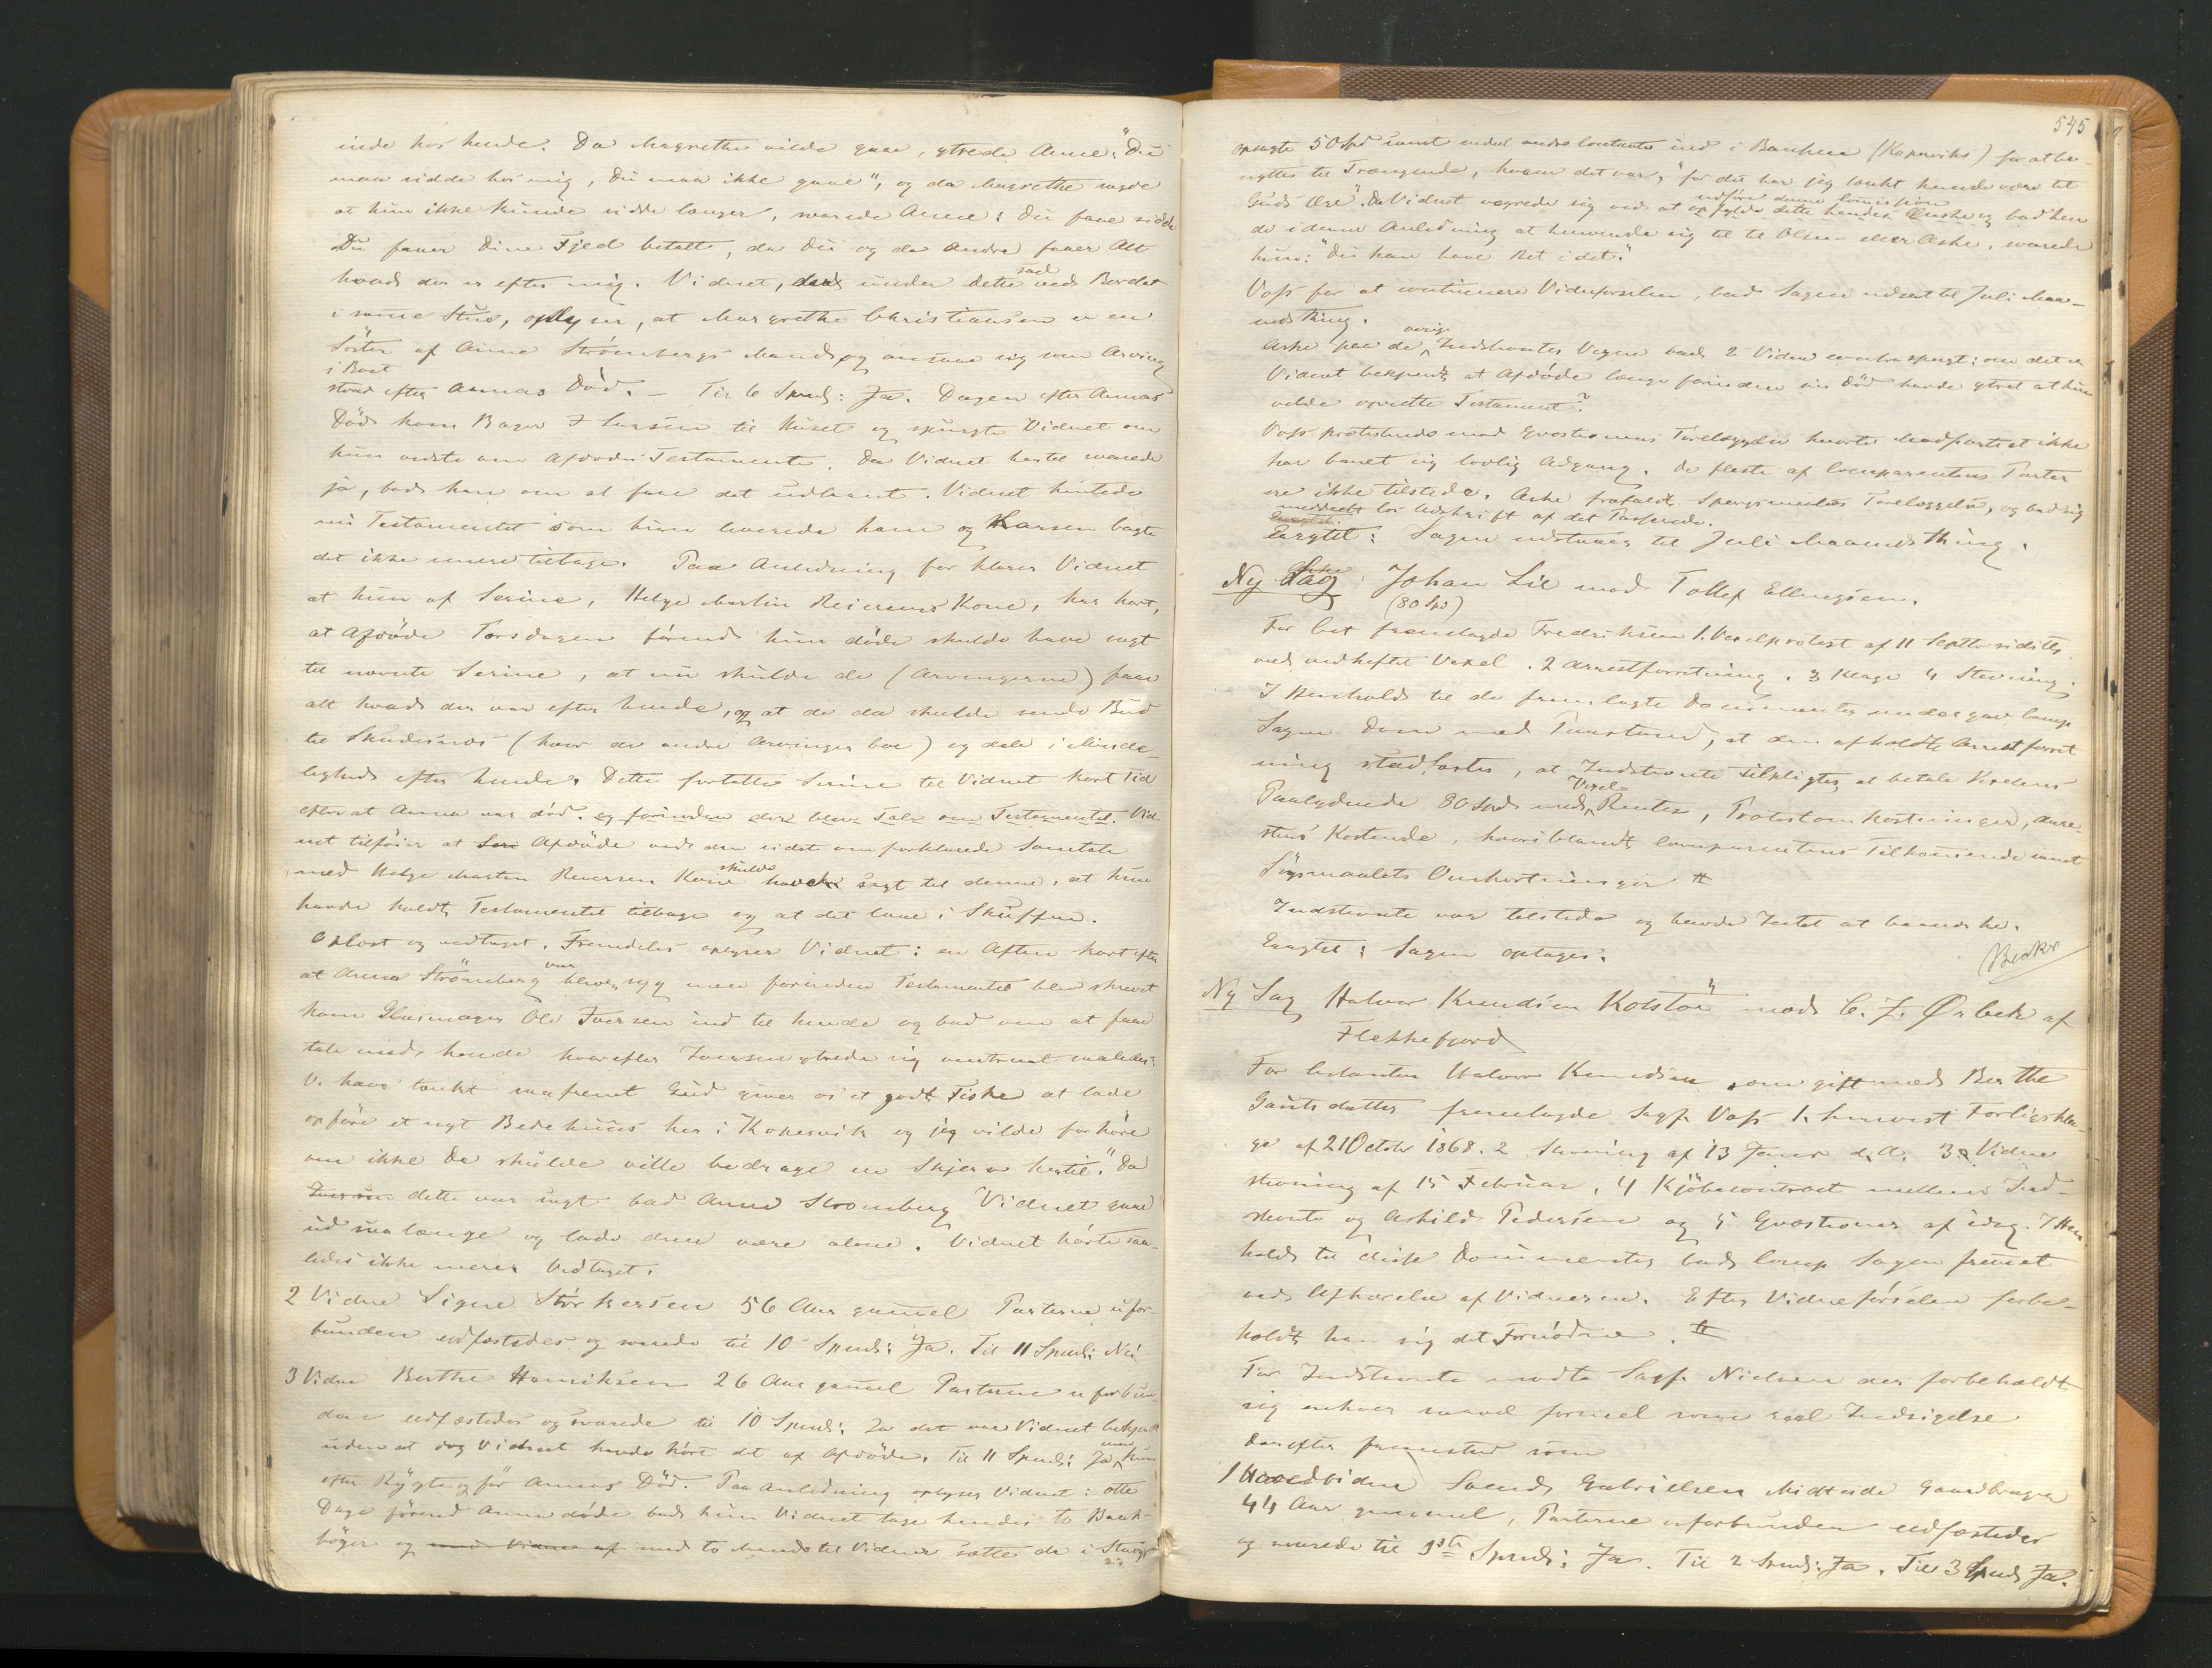 inde hos hende. Da Magrethe vilde gaae, ytrede Anne: "Du
maa sidde hos mig, Du maa ikke gaae", og da Magrethe sagde
at hun ikke kunde sidde længer, svarede Anne: Du faae sidde
Du faaer Dine Fjed betalt, da Du og de Andre faaer Alt
hvad der er efter mig. Vidnet, der under dette sad ved Bordet
i samme Stue, oplyser, at Margrethe Christiansen er en
Söster af Anne Strömbergs Mand og ansaae sig som Arving
i Boet
efter Annas Död. – Til 6 Spmd: Ja. Dagen efter Annas
Död kom Bager J Larsen til Huset og spurgte Vidnet om
hun vidste om Afdödes Testamente. Da Vidnet hertil svarede
ja, bad han om at faae det udlaant. Vidnet hentede
nu Testamentet som hun leverede ham og Larsen bragte
det ikke mere tilbage. Paa Anledning forklarer Vidnet
at hun af Serine, Helge Martin Reiersens Kone, har hørt,
at Afdöde Torsdagen förend hun döde skulde have sagt
til nævnte Serine, at nu skulde de (Arvingerne) faae
alt hvad der var efter hende, og at de da skulde sende Bud
til Skudesnæs (hvor de andre Arvinger boe) og dele i Minde-
lighed efter hende. Dette fortalte Serine til Vidnet kort Tid
efter at Anna var död. og forinden der blev Tale om Testamentet. Vid-
net tilföier at Afdöde ved den sidst omforklarede Samtale
med Helge Martin Reiersens Kone skulde have sagt til denne, at hun
havde holdt Testamentet tilbage og at det laae i Skuffen.
Oplæst og vedtaget. Fremdeles oplyser Vidnet: en Aften kort efter
at Anna Strömberg var bleven syg men forinden Testamentet blev skrevet
kom Glasmager Ole Iversen ind til hende og bad om at faae
tale med hende hvorefter Iversen ytrede sig omtrent saaledes:
V. have tænkt saafremt Gud giver os et godt Fiske at lade
opföre et nyt Bedehuus her i Kopervik og jeg vilde forhöre
om ikke De skulde ville bedrage en Skjerv hertil." Da
dette var sagt bad Anne Stromberg Vidnet gaae
ud saa længe og lade dem være alene. Vidnet hörte saa-
ledes ikke mere. Vedtaget.
2 Vidne Signe Störkersen 56 Aar gammel Parterne ufor-
bunden edfæstedes og svarede til 10 Spmd: Ja. Til 11 Spmd: Nei
3 Vidne Berthe Henriksen 26 Aar gammel Parterne uforbun-
den edfæstedes og svarede til 10 Spmd: Ja det var Vidnet bekjendt
uden at dog Vidnet havde hört det af Afdöde. Til 11 Spmd: Ja men kun
efter Rÿgte og för Annas Död. Paa Anledning oplyser Vidnet: otte
Dage förend Anne döde bad hun Vidnet tage hendes to Bank-
böger og med to Mænd til Vidner sætte de i
545
50 Spd samt endel andre Contanter ind i Banken (Koperviks) for at be-
nyttes til Trængende, hvem det var, "for det har jeg tænkt kunde være til
Guds Ære". Da Vidnet vægrede sig ved at udföre denne Comission opfylde dette hendes Ønske og bad hen-
de i denne Anledning at henvende sig til Olsen eller Aske, svarede
hun: "Du kan have Ret i det."
Voss for at continuere Vidneførselen, bad Sagen udsat til Juli Maa-
neds Thing.
Aske paa de øvrige Indstevntes Vegne bad 2 Vidne contraspurgt: om det er
Vidnet bekjendt at Afdöde længe forinden sin Död havde ytret at hun
vilde oprette Testament?
Voss protesterede mod Qvæstionens Forelæggelse hvortil Modpartiet ikke
har banet sig lovlig Adgang. De fleste af Comparentens Parter
ere ikke tilstede. Aske frafaldt Spørgsmaalets Forelæggelse, og bad sig
meddeelt Udskrift af det Passerede.
Eragtet: Sagen udstaaer til Juli Maaneds Thing.
Ny Sag Johan Lie mod Tollef Ellingsen.
(80 Spd)
For Cit fremlagde Fredriksen 1. Vexelprotest af 11 Septbr sidstl.
med vedheftet Vexel. 2 Arrestforretning. 3 Klage 4 Stevning.
I Henhold til de fremlagte Documenter undergav Comp.
Sagen Dom med Paastand, at den afholdte Arrestforret-
ning stadfæstes, at Indstevnte tilpligtes at betale Vexelens
Paalydende 80 Spd med Vexel-Renter, Protestomkostninger, Arre-
stens Kostende, hvoriblandt Comparentens Tilkommende samt
Sögsmaalets Omkostninger #
Indstevnte var tilstede og havde Intet at bemærke.
Eragtet: Sagen optages.
Ny Sag Halvor Knudsen Kolstöe mod C. Z. Ørbek af
Flekkefjord
For Citanten Halvor Knudsen som gift med Berthe
Gautsdatter fremlagde Sagf. Voss 1. henvist Forligskla-
ge af 21 October 1868. 2 Stevning af 13 Januar d. A. 3 Vidne
stevning af 15 Februar, 4 Kjöbecontract mellem Ind-
stevnte og Askild Pedersen og 5 Qvæstioner af idag. I Hen-
hold til disse Documenter bad Comp. Sagen fremmet
ved Afhörelse af Vidnerne. Efter Vidneförselen forbe-
holdt han sig det Fornödne. #
For Indstevnte mödte Sagf. Nielsen der forbeholdt
sig enhver saavel formel som reel Indsigelse
Derefter fremstod som
1 Hovedvidne Svend Gabrielsen Midteide Gaardbruger
44 Aar gammel, Parterne uforbunden edfæstedes
og svarede til 1ste Spmd: Ja. Til 2 Spmd: Ja. Til 3 Spmd Ja.